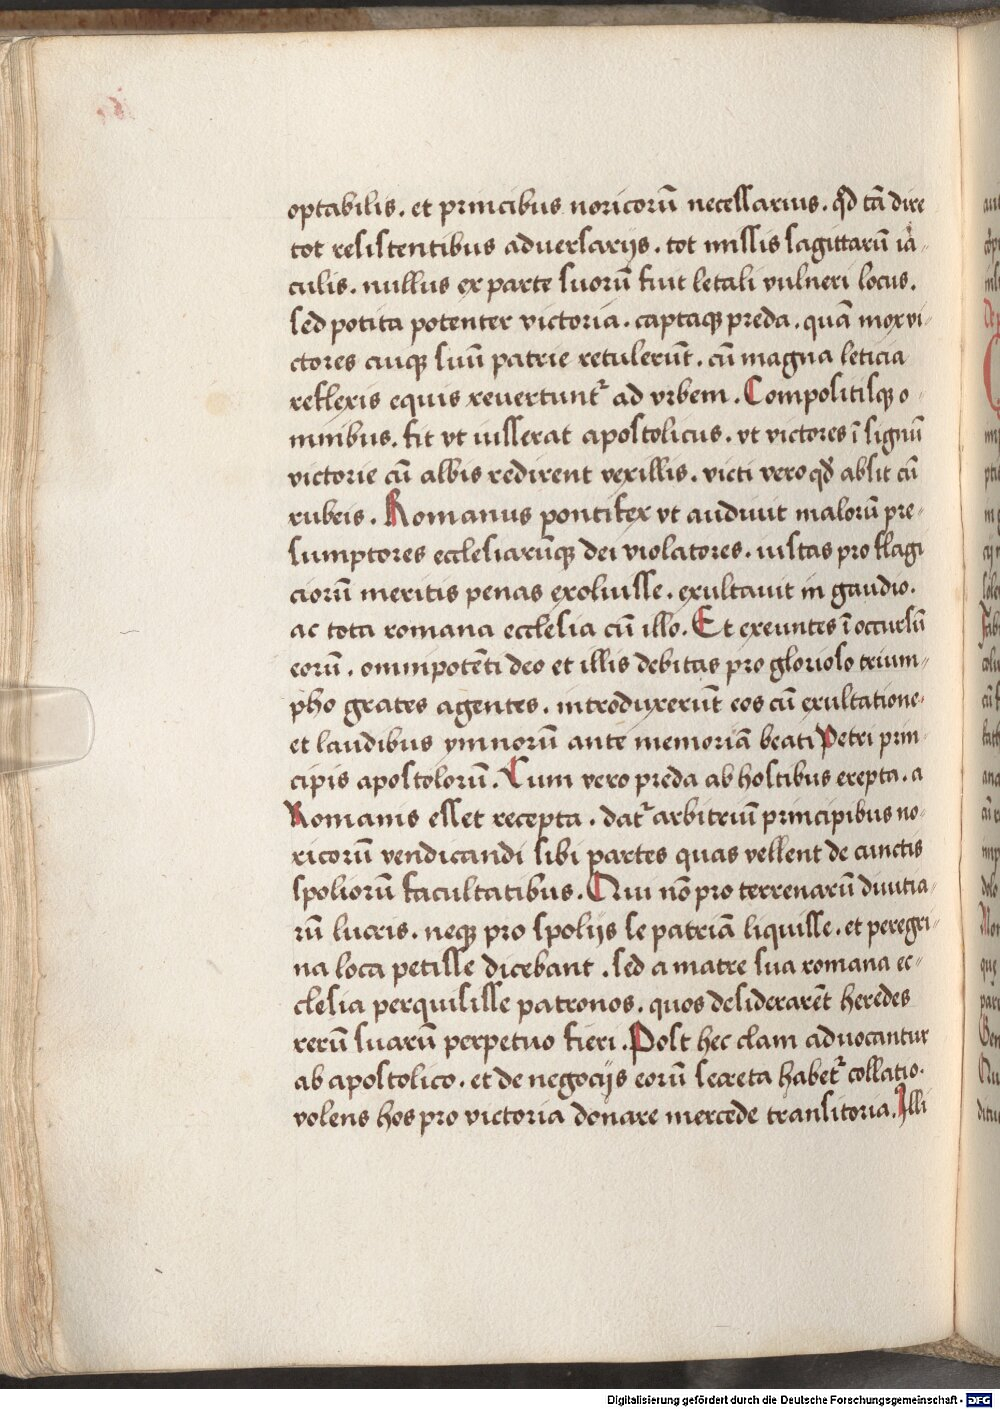 optabilis. et principibus noricorū necessarius. qd tā dire
tot resistentibus aduersarijs. tot missis sagittarū iā-
culis. nullus ex parte suorū fuit letali vulneri locus.
sed potita potenter victoria. captaqꝫ preda. quā mox vi-
ctores cuiqꝫ suū patrie retulerūt. cū magna leticia
reflexis equis reuertuntꝛ ad vrbem. Compositisqꝫ o-
mnibus. fit vt iusserat apostolicus. vt victores ī signū
victorie cū albis redirent vexillis. victi vero qd absit cū
rubeis. Romanus pontifex vt audiuit malorū pre-
sumptores ecclesiarūqꝫ dei violatores. iustas pro flagi
ciorū meritis penas exoluisse. exultauit in gaudio.
ac tota romana ecclesia cū illo. Et exeuntes ī occursū
eorū. omnipotēti deo et illis debitas pro glorioso trium-
pho grates agentes. introduxerūt eos cū exultatione
et laudibus ymnorū ante memoriā beati Petri prin-
cipis apostolorū. Cum vero preda ab hostibus erepta. a
Romanis esset recepta. datꝛ arbitriū principibus no-
ricorū vendicandi sibi partes quas vellent de cunctis
spoliorū facultatibus. Qui nō pro terrenarū diuitia-
rū lucris. neqꝫ pro spolijs se patriā liquisse. et peregri-
na loca petisse dicebant. sed a matre sua romana ec-
clesia perquisisse patronos. quos desiderarēt heredes
rerū suarū perpetuo fieri. Post hec clam aduocantur
ab apostolico. et de negocijs eorū secreta habetꝛ collatio.
volens hos pro victoria donare mercede transitoria. Illi
Digitalisierung gefördert durch die Deutsche Forschungsgemeinschaft - DFG